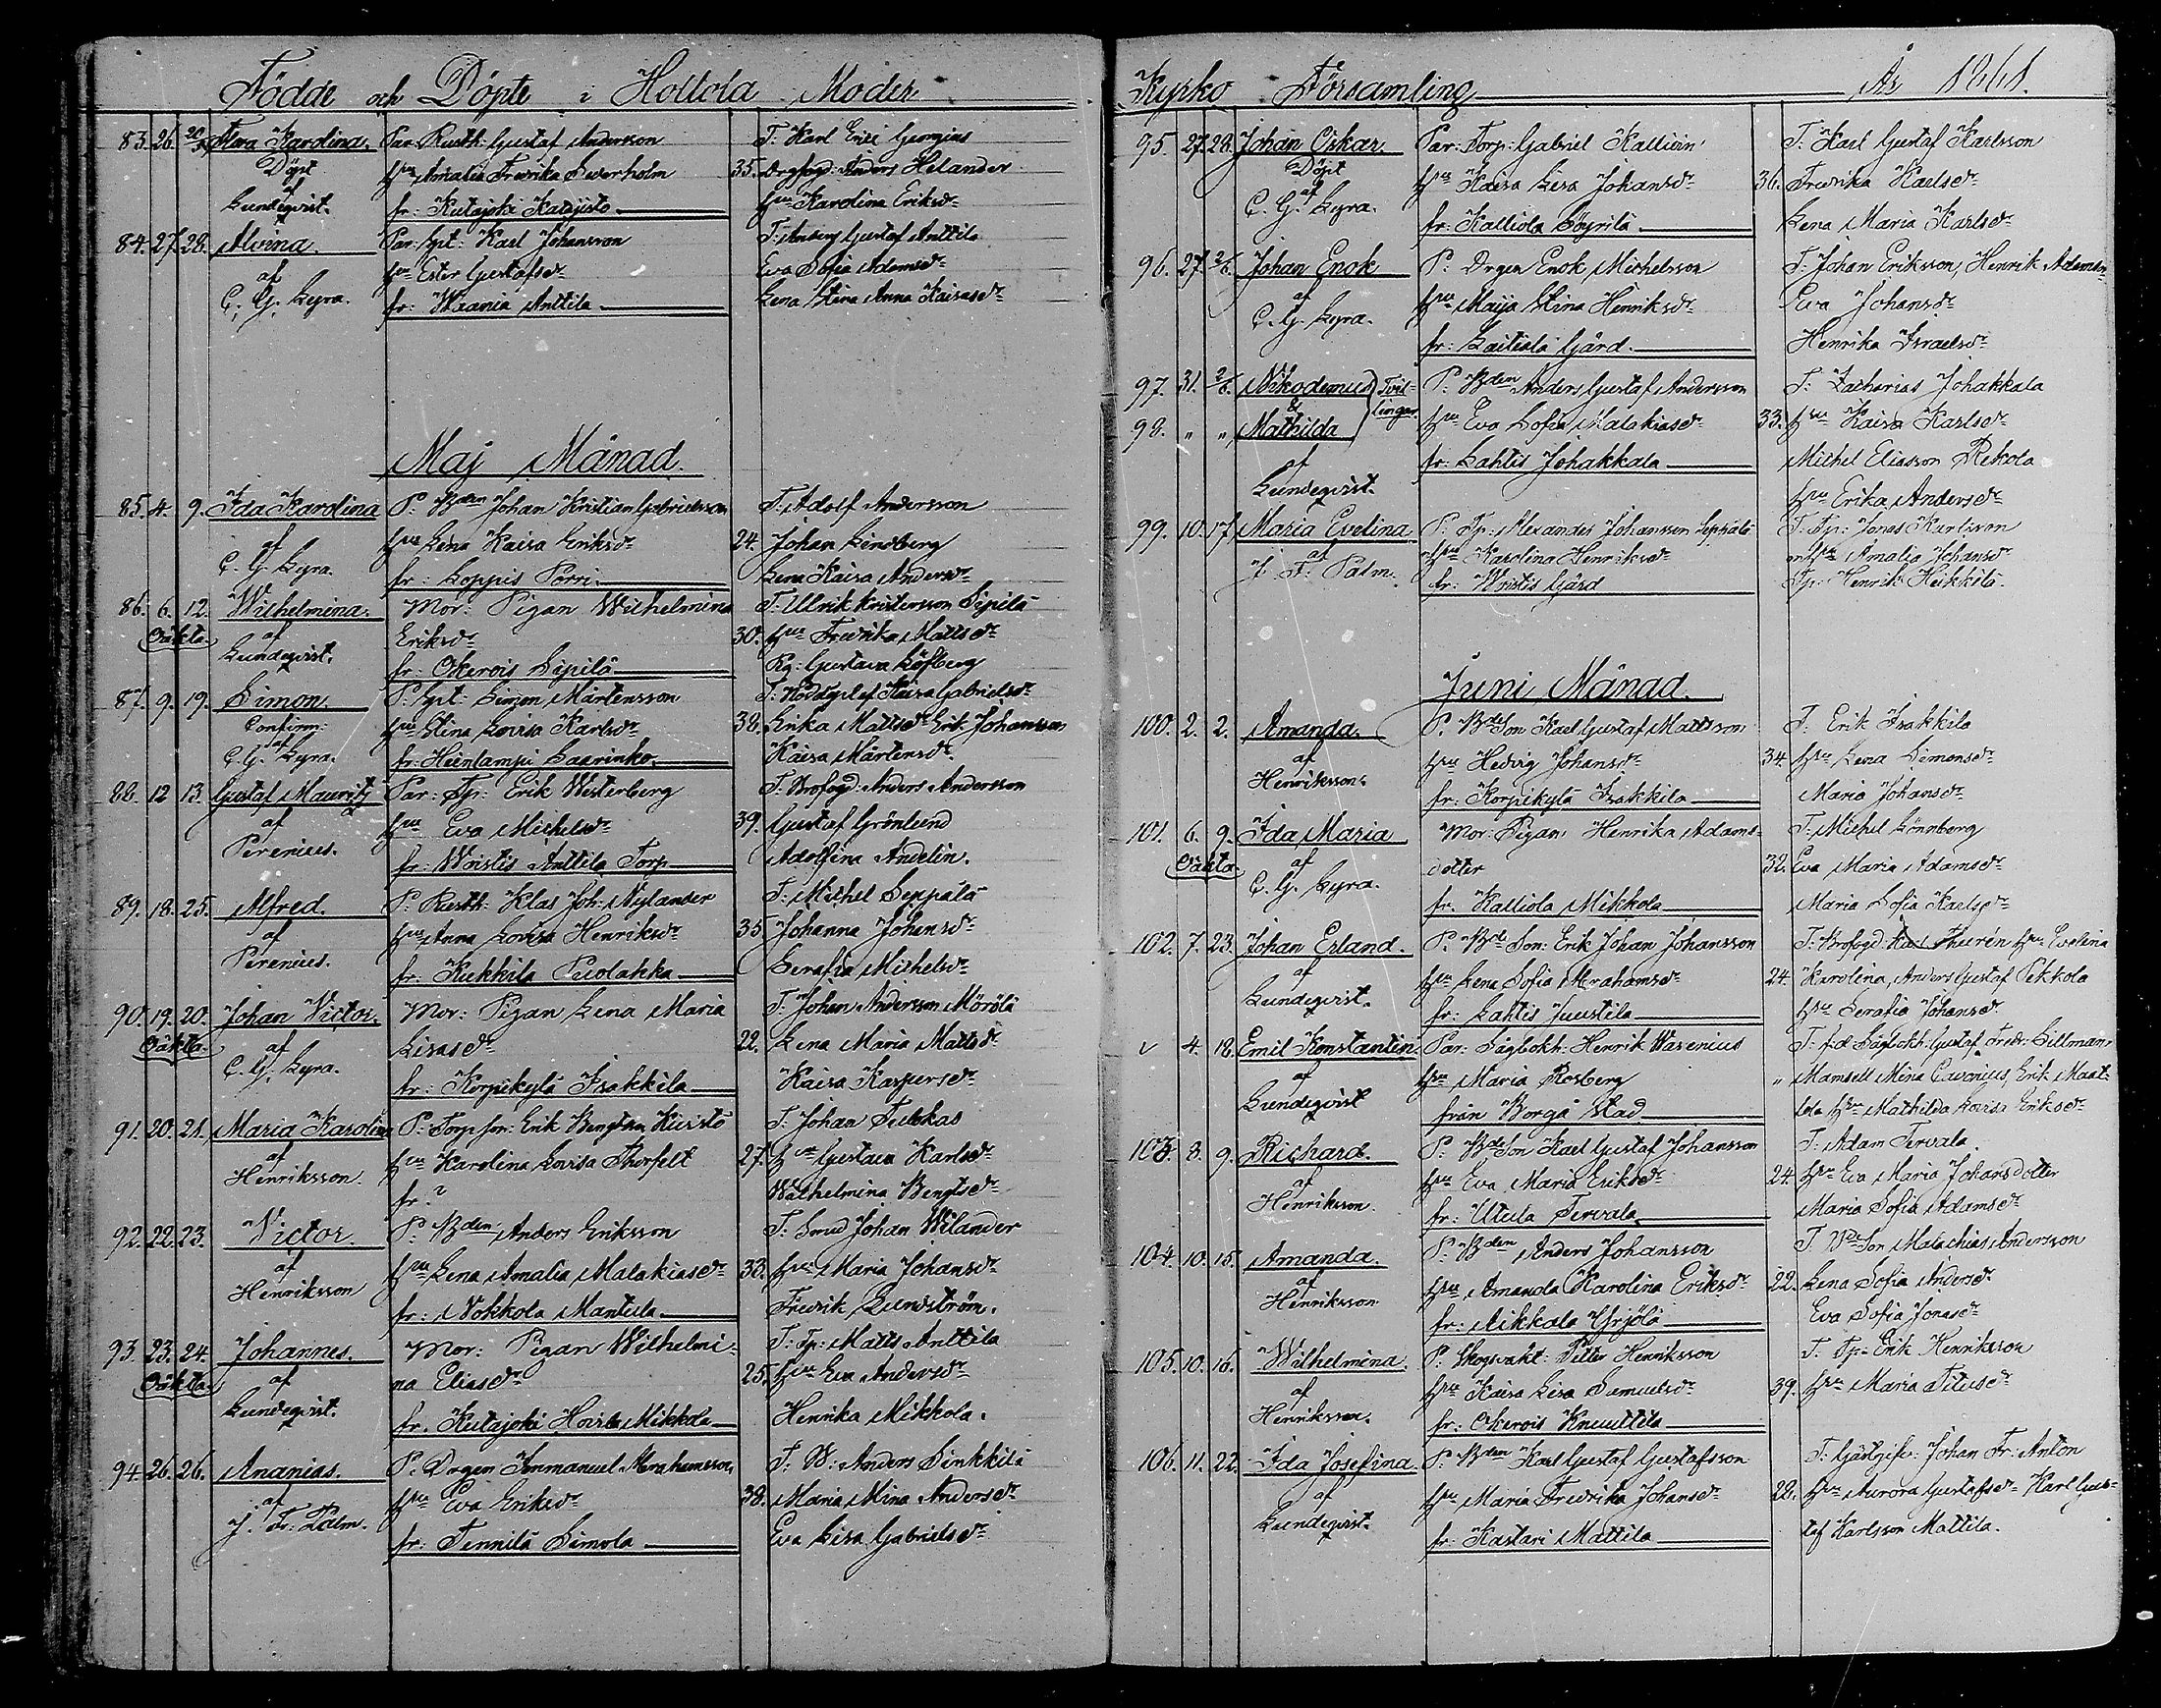 Födde och Döpte i Hollola Moder
83. 26. 20/5 Alma Karolina. Par: Rusth: Gustaf Andersson T: Karl Eric Georgius
Döpt hu Amalia Fredrika Sederholm 35. Drgfogd: Anders Helander
af Lundeqvist. fr: Kutajoki Katajisto hu Karolina Eriksdr
84. 27. 28. Alvina. Par: Spt: Karl Johansson T: Gustaf Anttila
af hu Ester Gustafsdr Eva Sofia Adamsdr
C. G. Lyra. fr: Waania Anttila Lena Stina Anna Kaisasdr
Maj Månad.
85. 4. 9. Ida Karolina P: Bden Johan Kristian Gabrielsson T: Adolf Andersson
af hu Lena Kaisa Eriksdr 24. Johan Lindberg
C. G. Lyra. fr: Loppis Porri Lena Kaisa Andersdr
86. 6. 12. Wilhelmina. Mor: Pigan Wilhelmina T: Ullrik Kristersson Sipilä
Oäkta. af Eriksdr 30. hu Fredrika Mattsdr
Lundeqvist. fr: Okerois Sipilä Pig: Gustava Löfberg
87. 9. 19. Simon. P: Spt: Simon Mårtensson T: Nöddöpt af Kaisa Gabrielsdr
Confirm: hu Stina Lovisa Karlsdr 38. Erika Mattsdr Erik Johansson
af C. G. Lyra. fr: Heinlampi Saarinko. Kaisa Mårtensdr
88. 12 13. Gustaf Mauritz Par: Tp: Erik Westerberg T: Brofogd: Anders Andersson
af hu Eva Michelsdr 39. Gustaf Grönlund
Perenius. fr: Woistis Anttila Torp Adolfina Andelin.
89. 18. 25. Alfred. P: Rusth: Klas Joh: Nylander T: Michel Seppälä
af hu Anna Lovisa Henriksdr 35 Johanna Johansdr
Perenius. fr: Kukkila Puolakka Serafia Michelsdr
90. 19. 20. Johan Victor. Mor: Pigan Lena Maria T: Johan Andersson Mörölä
Oäkta. af Lisasdr 22. Lena Maria Mattsdr
C. G. Lyra. fr: Korpikylä Isakkila Kaisa Kaspersdr
91. 20. 21. Maria Karolina P: Torp son: Erik Bengtsson Kuisto T: Johan Tulokas
af hu Karolina Lovisa Thorfelt 27. hu Gustava Karlsdr
Henriksson fr? Wilhelmina Bengtsdr
92. 22. 23. Victor. P: Bden Anders Eriksson T: Smed Johan Wilander
af hu Lena Amalia Malakiasdr 33. hu Maria Johansdr
Henriksson fr: Nokkola Mantula Fredrik Lundström.
93. 23. 24. Johannes. Mor: Pigan Wilhelmi- T: Tp: Matts Anttila
Oäkta. af na Eliasdr 25. hu Eva Andersdr
Lundeqvist. fr: Kutajoki Hoirla Mikkola Henrika Mikkola.
94. 26. 26. Ananias. P: Drgen Immanuel Abrahamsson T: B: Anders Sinkkilä
af hu Eva Eriksdr 38. Maria Mina Andersdr
J. Fr: Palm. fr: Tennilä Simola Eva Lisa Gabrielsdr
Kyrko Församling År 1861.
95. 27. 28. Johan Oskar. Par: Torp: Gabriel Kallioin T: Karl Gustaf Karlsson
Döpt af hu Kaisa Lisa Johansdr 36. Fredrika Karlsdr
C. G. Lyra. fr: Kalliola Böyrilä Lena Maria Karlsdr
96. 27. 2/6. Johan Enok P: Drgen Enok Michelsson T: Johan Eriksson, Henrik Adamsn
af hu Maija Stina Henriksdr Eva Johansdr
C. G. Lyra. fr: Laitiala Gård. Henrika Israelsdr
97. 31. 2/6. Nikodemus Tvil- P: Bden Anders Gustaf Andersson T: Zacharias Johakkala
&
98. " " Mathilda lingar. hu Eva Sofia Malakiasdr 33. hu Kaisa Karlsdr
af fr: Lahtis Johakkala Michel Eliasson Rekola
Lundeqvist. hu Erika Andersdr
99. 10. 17. Maria Evelina P: Tp: Alexander Johansson Seppälä T: Tp: Jonas Karlsson
af hu Karolina Henriksdr hu Amalia Johansdr
J. F: Palm. fr: Wiistis Gård Tp: Henrik Heikkilä.
Juni Månad.
100. 2. 2. Amanda. P: Bde Son Karl Gustaf Mattsson T: Erik Isakkila
af hu Hedvig Johansdr 34. hu Lena Simonsdr
Henriksson. fr: Korpikylä Isakkila Maria Johansdr
101. 6. 9. Ida Maria Mor: Pigan Henrika Adams- T: Michel Lönnberg
Oäkta. af dotter 32. Eva Maria Adamsdr
C. G. Lyra. fr. Kalliola Mikkola Maria Sofia Karlsdr
102. 7. 23. Johan Erland. P: Bde Son: Erik Johan Johansson T: Brofogd: Karl Thurén hu Evelina
af hu Lena Sofia Abrahamsdr 24. Karolina, Anders Gustaf Pekkola
Lundeqvist. fr: Lahtis Juustila hu Serafia Johansdr
v 4. 18. Emil Konstantin. Par: Sågbokh: Henrik Wasenius T: f.d. Sågbokh: Gustaf Fredr: Sillman,
af hu Maria Rosberg " Mamsell Mina Cavonius, Erik Maat-
Lundeqvist från Borgå stad tala hu Mathilda Lovisa Eriksdr
103. 8. 9. Richard. P: Bde Son Karl Gustaf Johansson T: Adam Tervala
af hu Eva Maria Eriksdr 24. hu Eva Maria Johansdotter
Henriksson. fr: Utula Tervala Maria Sofia Adamsdr
104. 10. 15. Amanda. P: Bden Anders Johansson T. Bde Son Malachias Andersson
af hu Amanda Karolina Eriksdr 22. Lena Sofia Andersdr
Henriksson fr: Aikkala Yrjölä Eva Sofia Jonasdr
105. 10. 16. Wilhelmina. P: Skogsvakt: Petter Henriksson T: Tp: Erik Henriksson
af hu Kaisa Lisa Samuelsdr 39. hu Maria Titusdr
Henriksson. fr: Okerois Knuuttila
106. 11. 22. Ida Josefina. P: Bden Karl Gustaf Gustafsson T: Gästgifv: Johan Fr: Anton
af hu Maria Fredrika Johansdr 22. hu Aurora Gustafsdr Karl Gus-
Lundeqvist. fr: Kastari Mattila taf Karlsson Mattila.